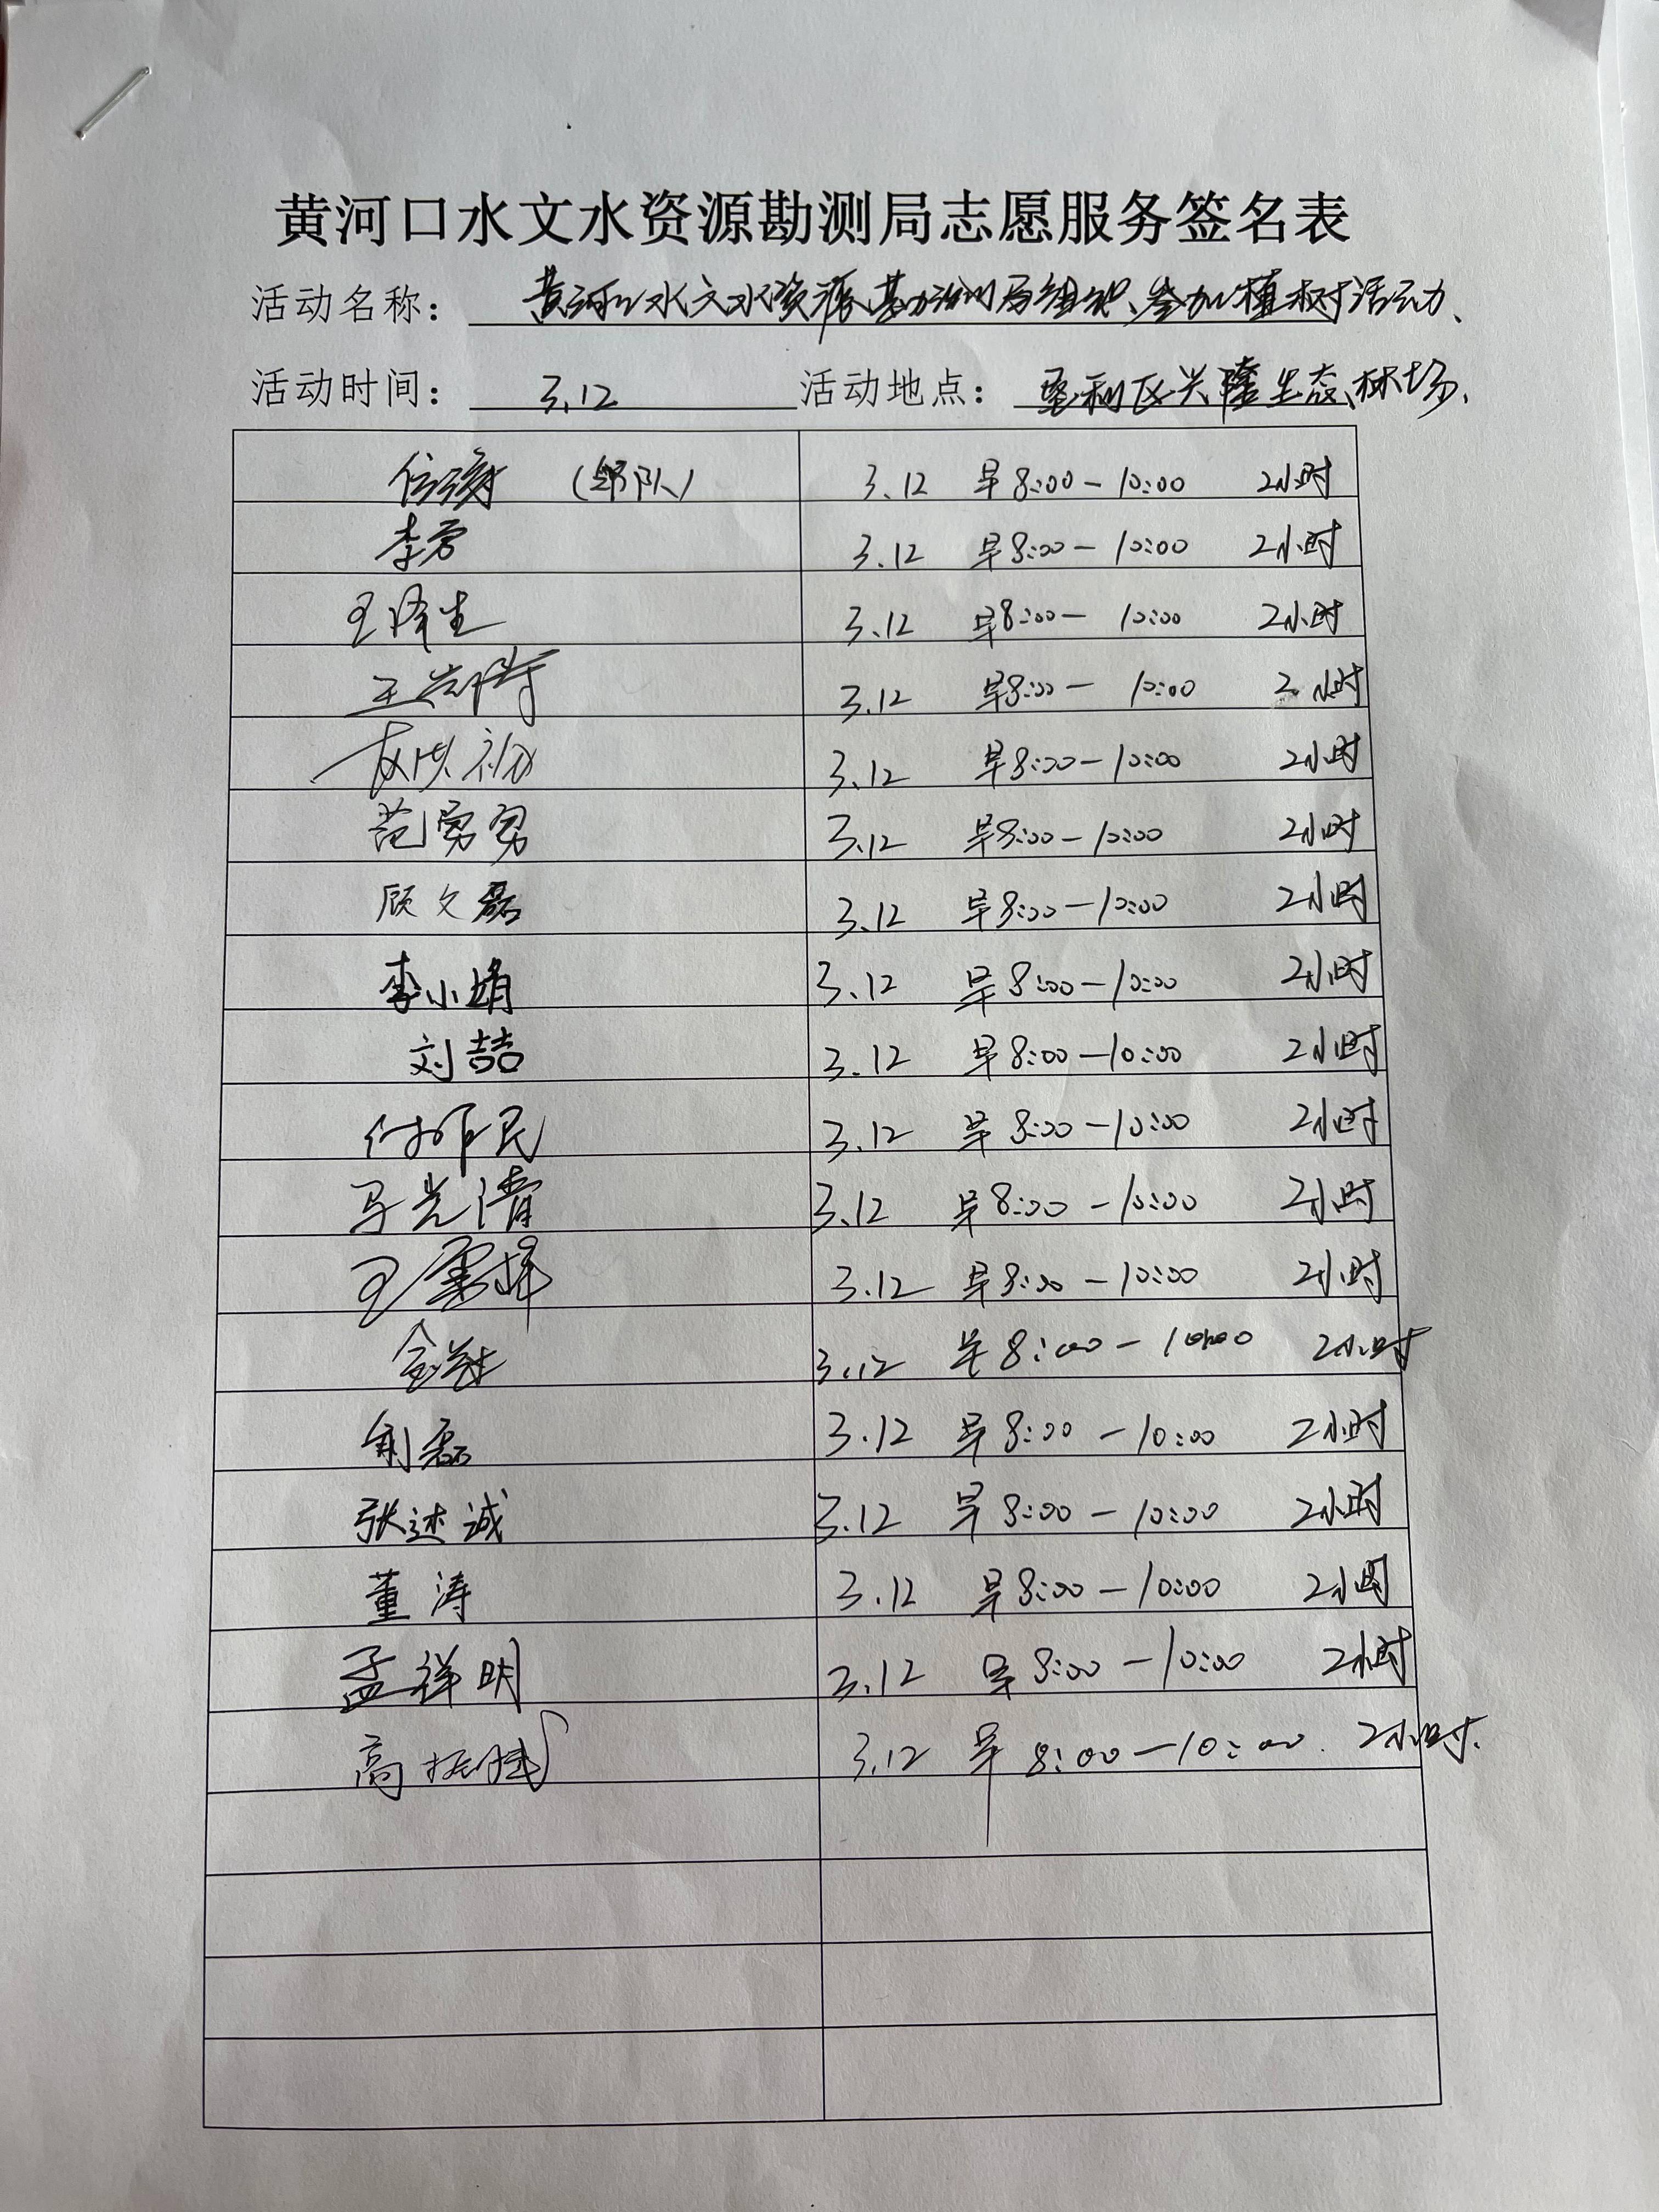 黄河口水文水资源勘测局志愿服务签名表
活动名称： 黄河口水文水资源勘测局组织、参加植树活动、
活动时间： 3.12 活动地点： 垦利区兴隆生态林场、
3.12 早8:00-10:00 2小时
李芳 3.12 早8:00-10:00 2小时
王泽生 3.12 早8:00- 10:00 2小时
3.12 早8:00- 10:00 2小时
3.12 早8:00-10:00 2小时
范勇勇 3.12 早8:00-10:00 2小时
顾文磊 3.12 早8:00-10:00 2小时
李小娟 3.12 早8:00-10:00 2小时
刘喆 3.12 早8:00-10:00 2小时
付作民 3.12 早8:00-10:00 2小时
马光清 3.12 早8:00-10:00 2小时
王 3.12 早8:00-10:00 2小时
3.12 早8:00-10:00 2小时
磊 3.12 早8:00-10:00 2小时
张述诚 3.12 早8:00-10:00 2小时
董涛 3.12 早8:00-10:00 2小时
孟祥明 3.12 早8:00-10:00 2小时
高振斌 3.12 早 8:00-10:00. 2小时.